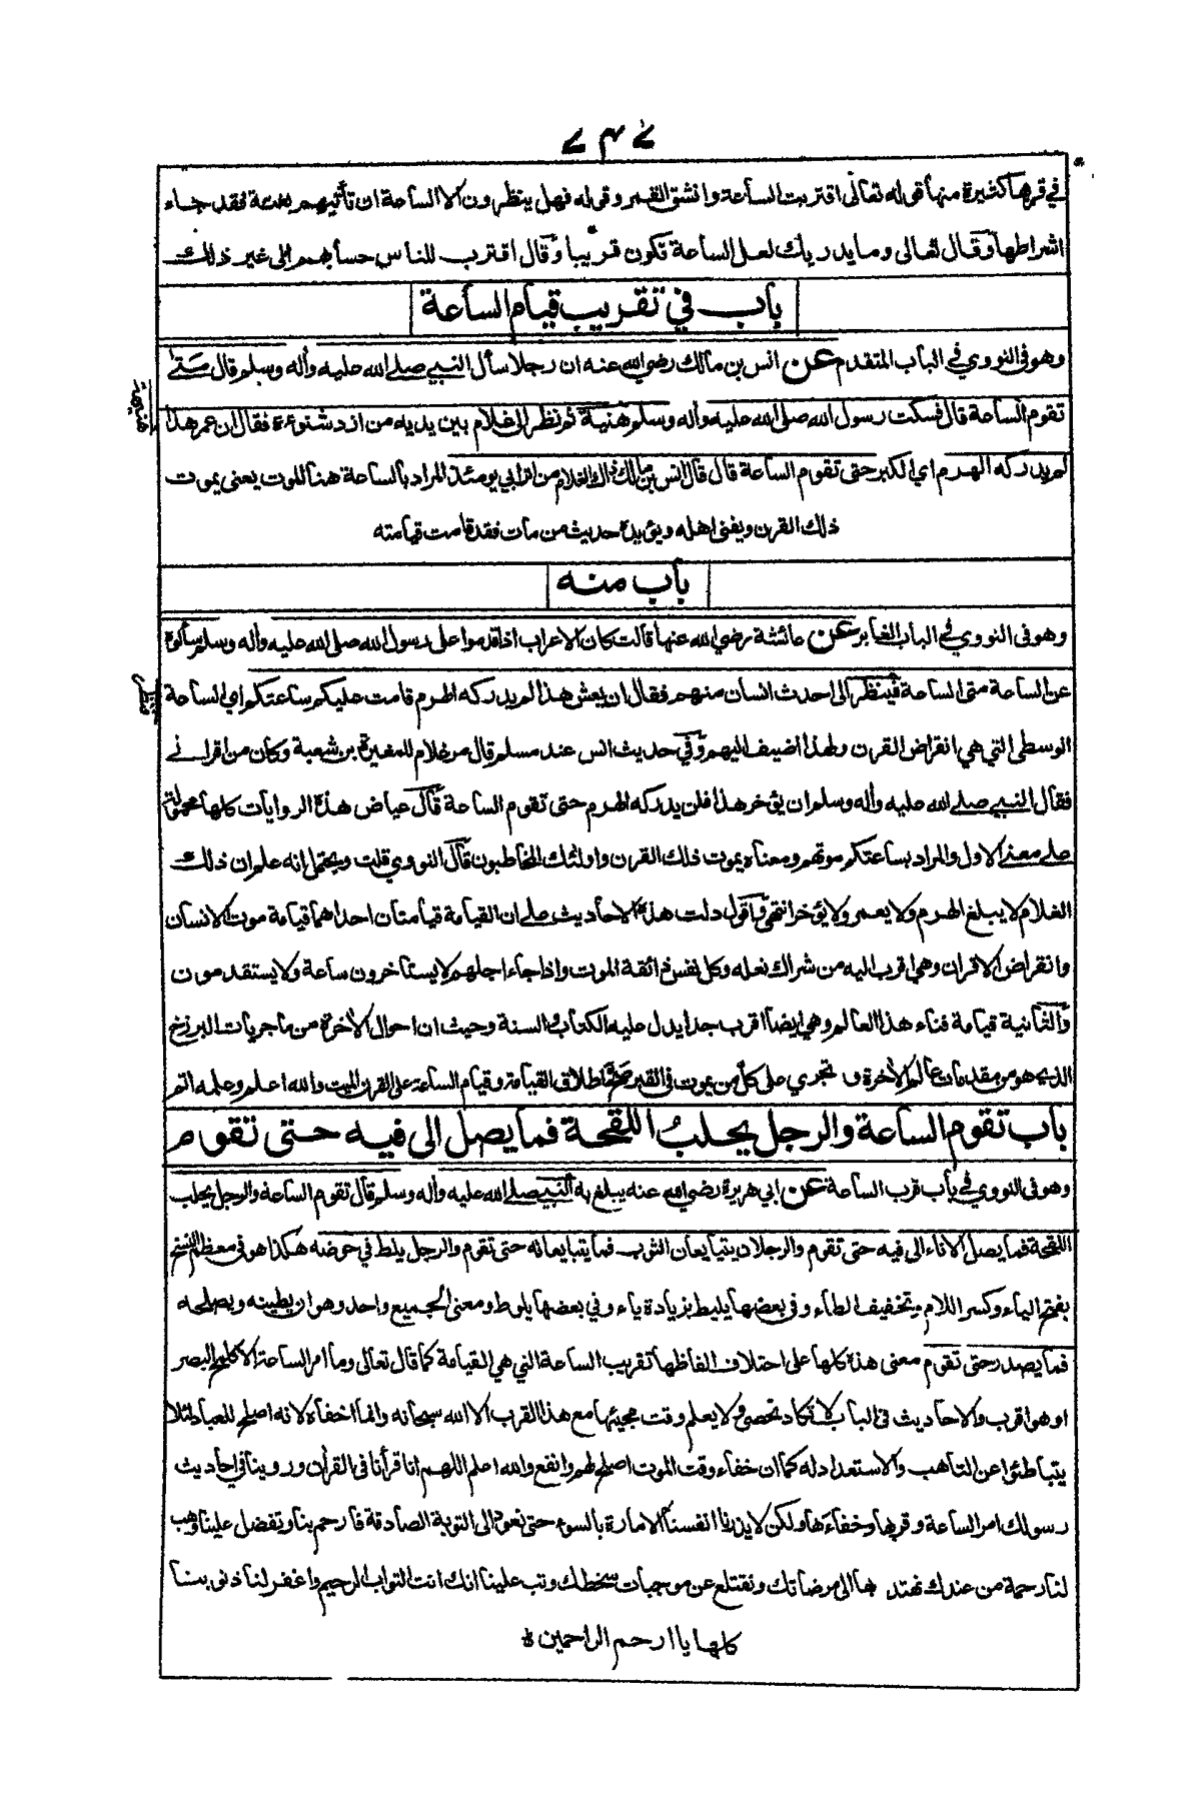 ٧٣٧
في قربها كثيرة منها قوله تعالى اقتربت الساعة وانشق القمر وقوله فهل ينظرون الا الساعة ان تأتيهم بغتة فقد جاء
اشراطها وقال تعالى وما يدريك لعل الساعة تكون قريبا وقال اقترب للناس حسابهم الى غير ذلك
باب في تقريب قيام الساعة
وهو فى النووي في الباب المتقدم عن انس بن مالك رضي الله عنه ان رجلا سأل النبي صلى الله عليه وأله وسلم قال متى
تقوم الساعة قال فسكت رسول الله صلى الله عليه وأله وسلم هنية ثم نظر الى غلام بين يديه من ازد شنوءة فقال ان عمر هذا
لم يدركه الهرم اي الكبر حتى تقوم الساعة قال قال انس بن مالك ذاك الغلام من اترابي يومئذ المراد بالساعة هنا الموت يعنى يموت
ذلك القرن ويفنى اهله ويؤيده حديث من مات فقد قامت قيامته
باب منه
وهو فى النووي في الباب الغابر عن عائشة رضي الله عنها قالت كان الاعراب اذا قدموا على رسول الله صلى الله عليه وأله وسلم سألوه
عن الساعة متى الساعة فينظر الى احدث انسان منهم فقال ان يعش هذا لم يدركه الهرم قامت عليكم ساعتكم اي الساعة
الوسطى التي هي انقراض القرن ولهذا اضيف اليهم وفي حديث انس عند مسلم قال مر غلام للمغيرة بن شعبة وكان من اقراني
فقال النبي صلى الله عليه وأله وسلم ان يؤخر هذا فلن يدركه الهرم حتى تقوم الساعة قال عياض هذه الروايات كلها محمولة
على معنى الاول والمراد بساعتكم موتهم ومعناه يموت ذلك القرن واولئك المخاطبون قال النووي قلت ويحتمل انه علم ان ذلك
الغلام لا يبلغ الهرم ولا يعمر ولا يؤخر انتهى واقول دلت هذه الاحاديث على ان القيامة قيامتان احداهما قيامة موت الانسان
وانقراض الاقران وهي اقرب اليه من شراك نعله وكل نفس ذائقة الموت واذا جاء اجلهم لا يستأخرون ساعة ولا يستقدمون
والثانية قيامة فناء هذا العالم وهي ايضا اقرب جدا يدل عليه الكتاب والسنة وحيث ان احوال الأخرة من ماجريات البرزخ
الذي هو من مقدمات عالم الأخرة تجري على كل من يموت في القبر صح اطلاق القيامة وقيام الساعة على القرن الميت والله اعلم وعلمه اتم
باب تقوم الساعة والرجل يحلب اللقحة فما يصل الى فيه حتى تقوم
وهو فى النووي في باب قرب الساعة عن ابي هريرة رضي الله عنه يبلغ به النبي صلى الله عليه وأله وسلم قال تقوم الساعة والرجل يحلب
اللقحة فما يصل الاناء الى فيه حتى تقوم والرجلان يتبايعان الثوب فما يتبايعانه حتى تقوم والرجل يلط في حوضه هكذا هو في معظم النسخ
بفتح الياء وكسر اللام وتخفيف الطاء وفى بعضها يليط بزيادة ياء وفي بعضها يلوط ومعنى الجميع واحد وهو ان يطينه ويصلحه
فما يصدر حتى تقوم معنى هذه كلها على اختلاف الفاظها تقريب الساعة التي هي القيامة كما قال تعالى وما امر الساعة الا كلمح البصر
او هو اقرب والاحاديث فى الباب لا تكاد تحصى ولا يعلم وقت مجيئها مع هذا القرب الا الله سبحانه وانما اخفاه لانه اصلح للعباد لئلا
يتباطئوا عن التأهب والاستعداد له كما ان خفاء وقت الموت اصلح لهم وانفع والله اعلم اللهم انا قرأنا فى القرأن وروينا في احاديث
رسولك امر الساعة وقربها وخفاءها ولكن لا يذرنا انفسنا الامارة بالسوء حتى نعود الى التوبة الصادقة فارحم بنا وتفضل علينا وهب
لنا رحمة من عندك نهتد بها الى مرضاتك ونقتلع عن موجبات سخطك وتب علينا انك انت التواب الرحيم واغفر لنا ذنوبنا
كلها يا ارحم الراحمين